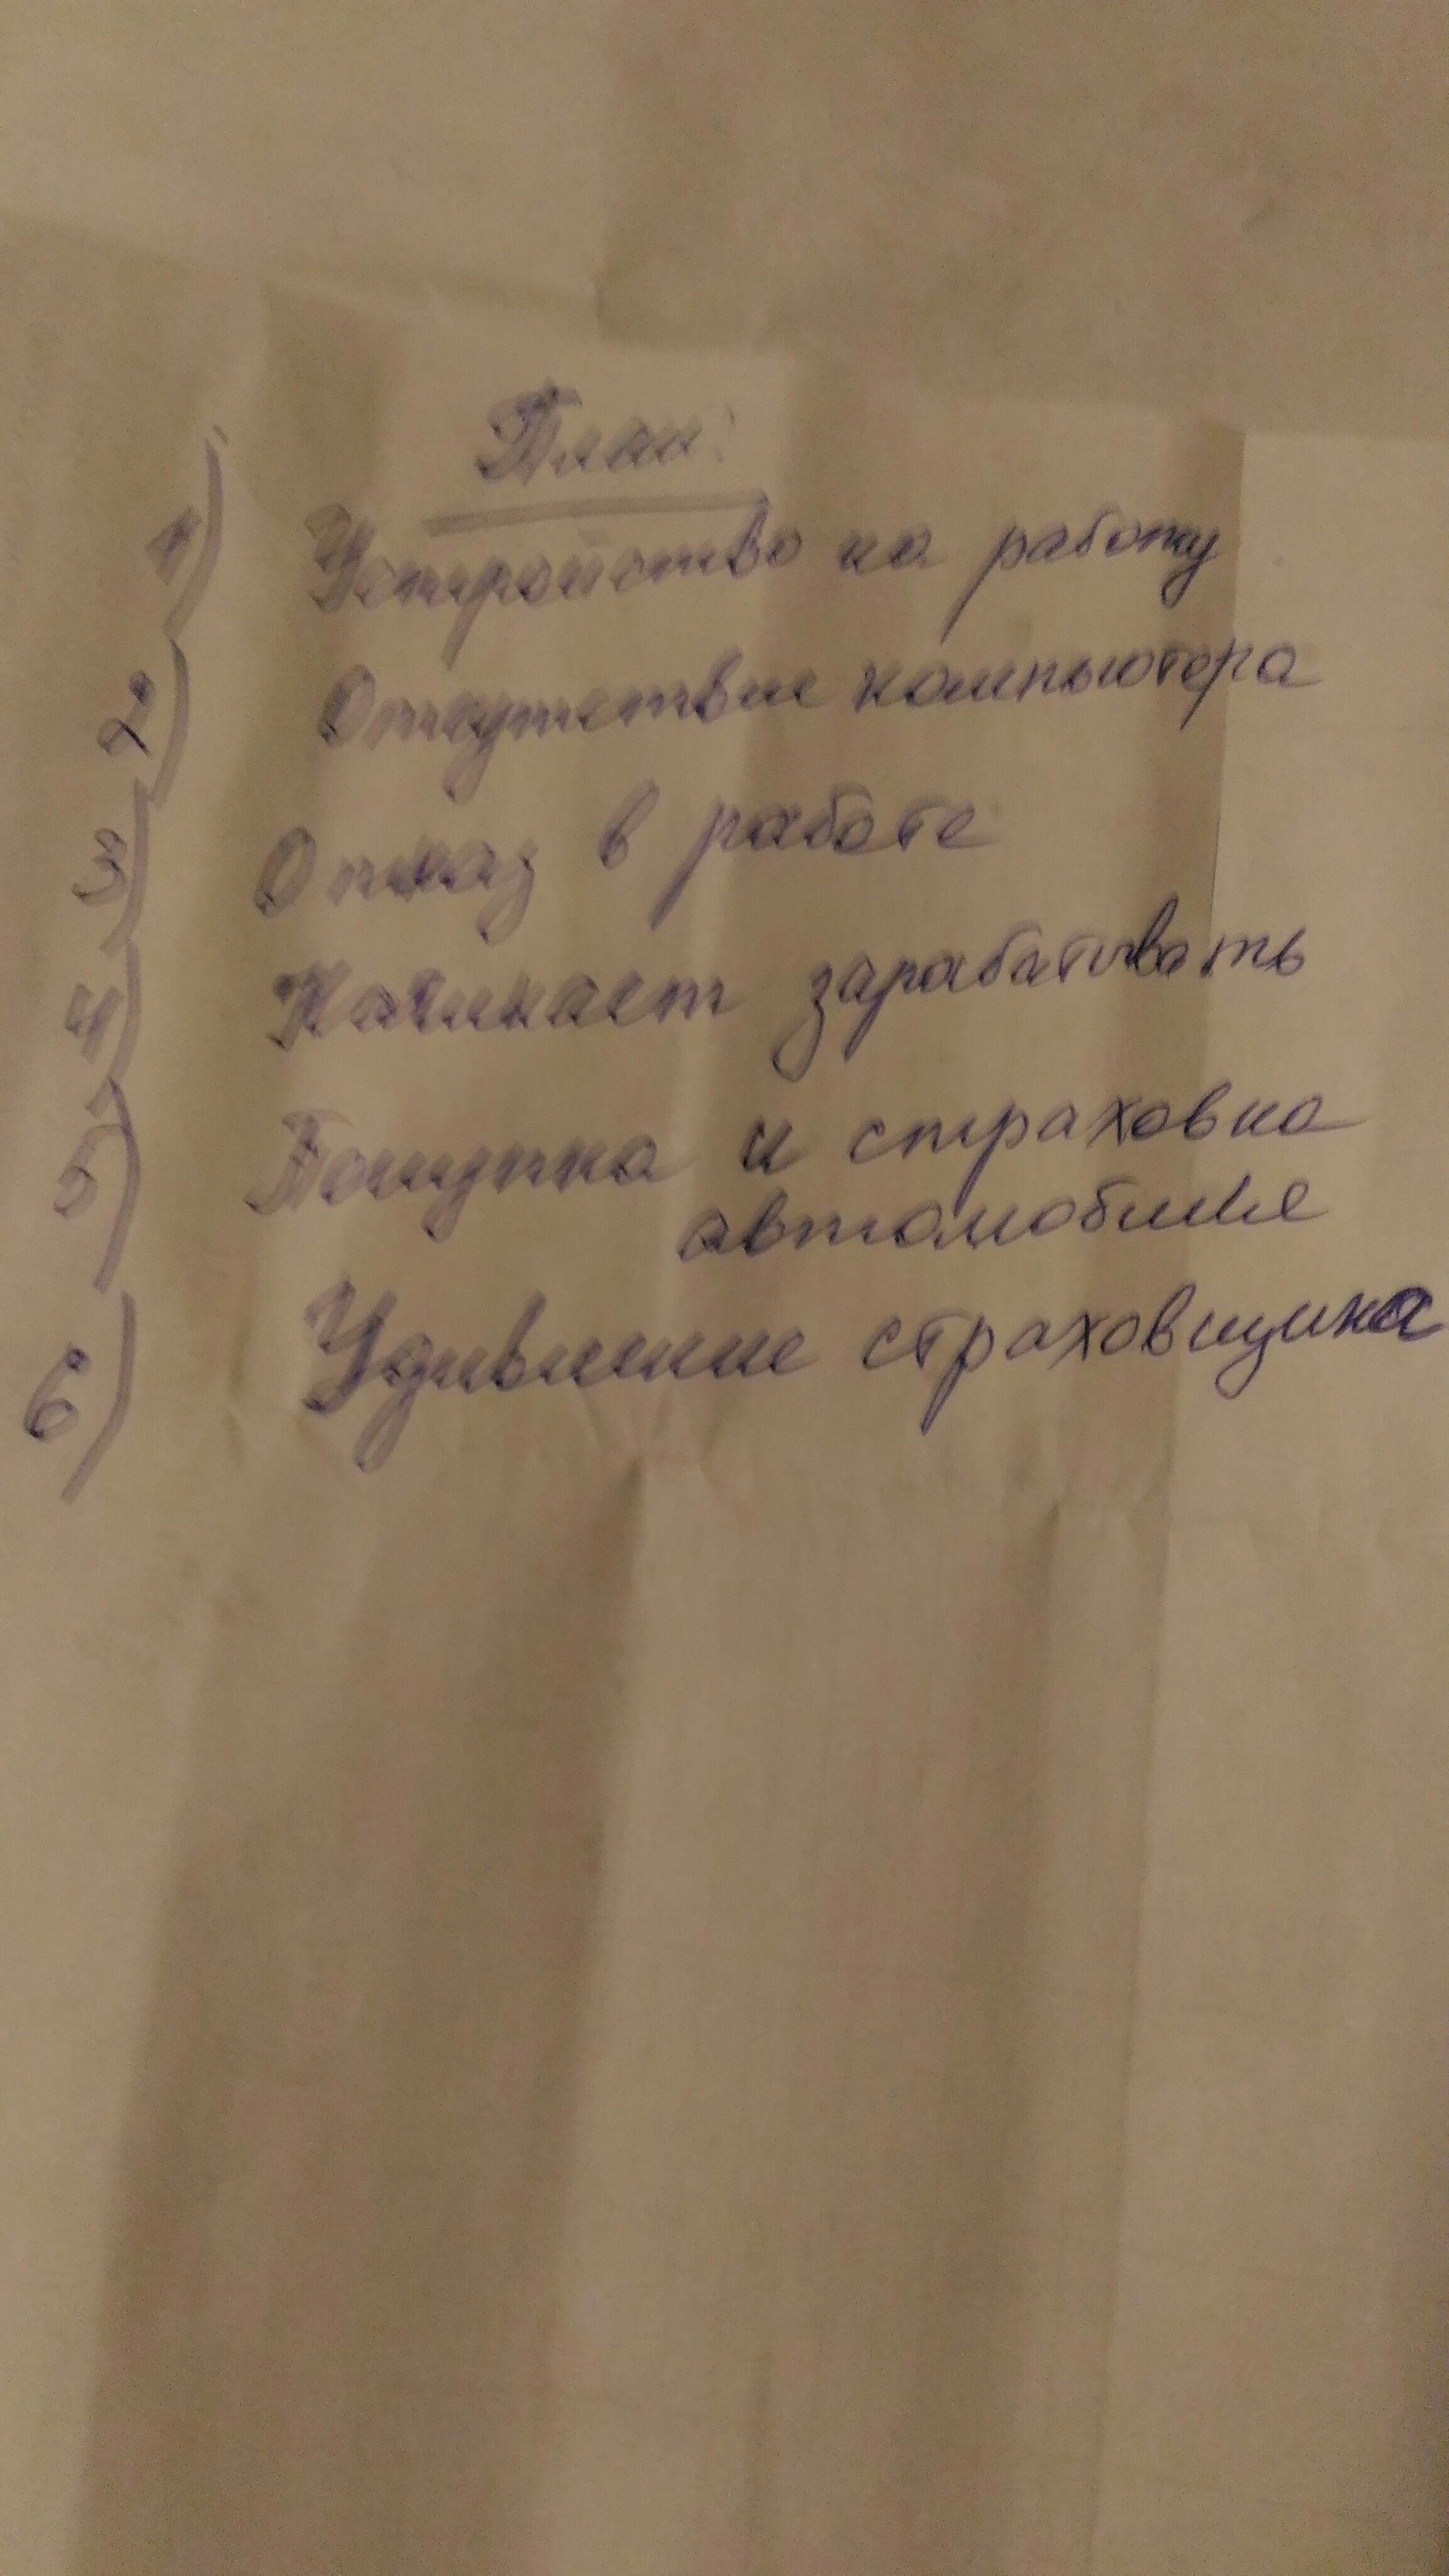 План:
1) Устройство на работу
2) Отсутствие компьютера
3) Отказ в работе
4) Начинает зарабатывать
5) Покупка и страховка
автомобиля
6) Удивление страховщика